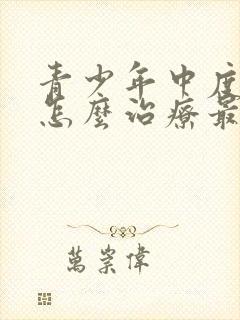 青少年中度
怎麼治療最
萬崇偉